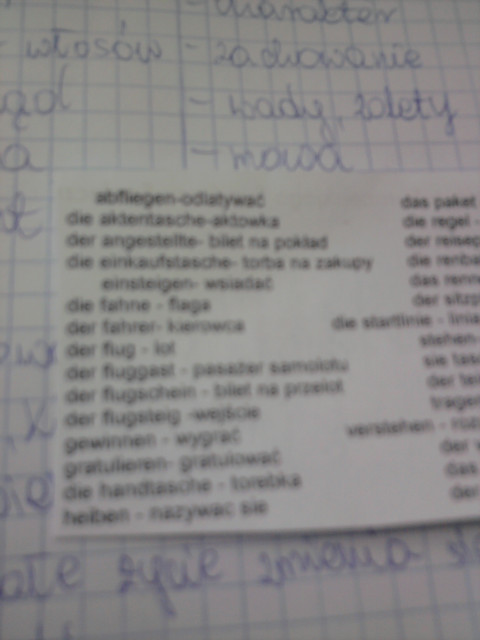 - charakter
- włosów - zachowanie
- wady, zalety
- mowa
abfliegen-odlatywać
die aktentasche-aktowka
der angestellte- bilet na pokład
die einkaufstasche- torba na zakupy
einsteigen- wsiadać
die fahne - flaga
der fahrer- kierowca
der flug - lot
der fluggast - pasażer samolotu
der flugschein - bilet na przelot
der flugsteig -wejście
gewinnen - wygrać
gratulieren- gratulować
die handtasche - torebka
heiben - nazywac sie
das paket
die regel -
der
die
das
der
die startlinie -
stehen-
sie
der
tragen
verstehen -
der
das
der
życie zmienia